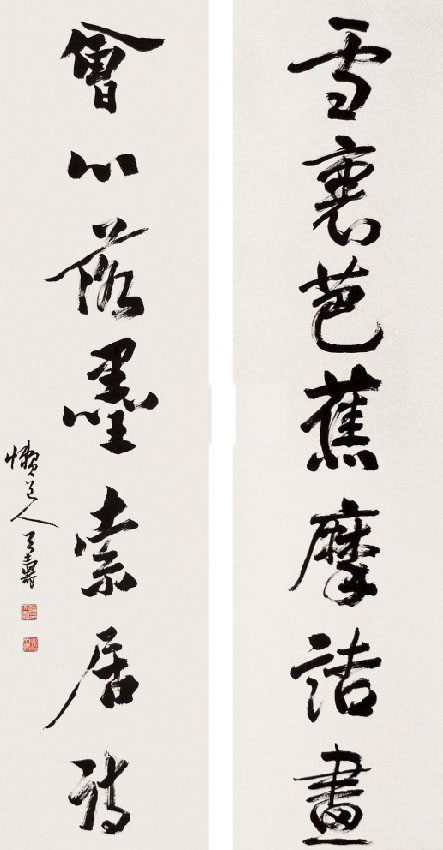 雪裏芭蕉摩詰畫
會心落墨索居詩
懶道人天壽